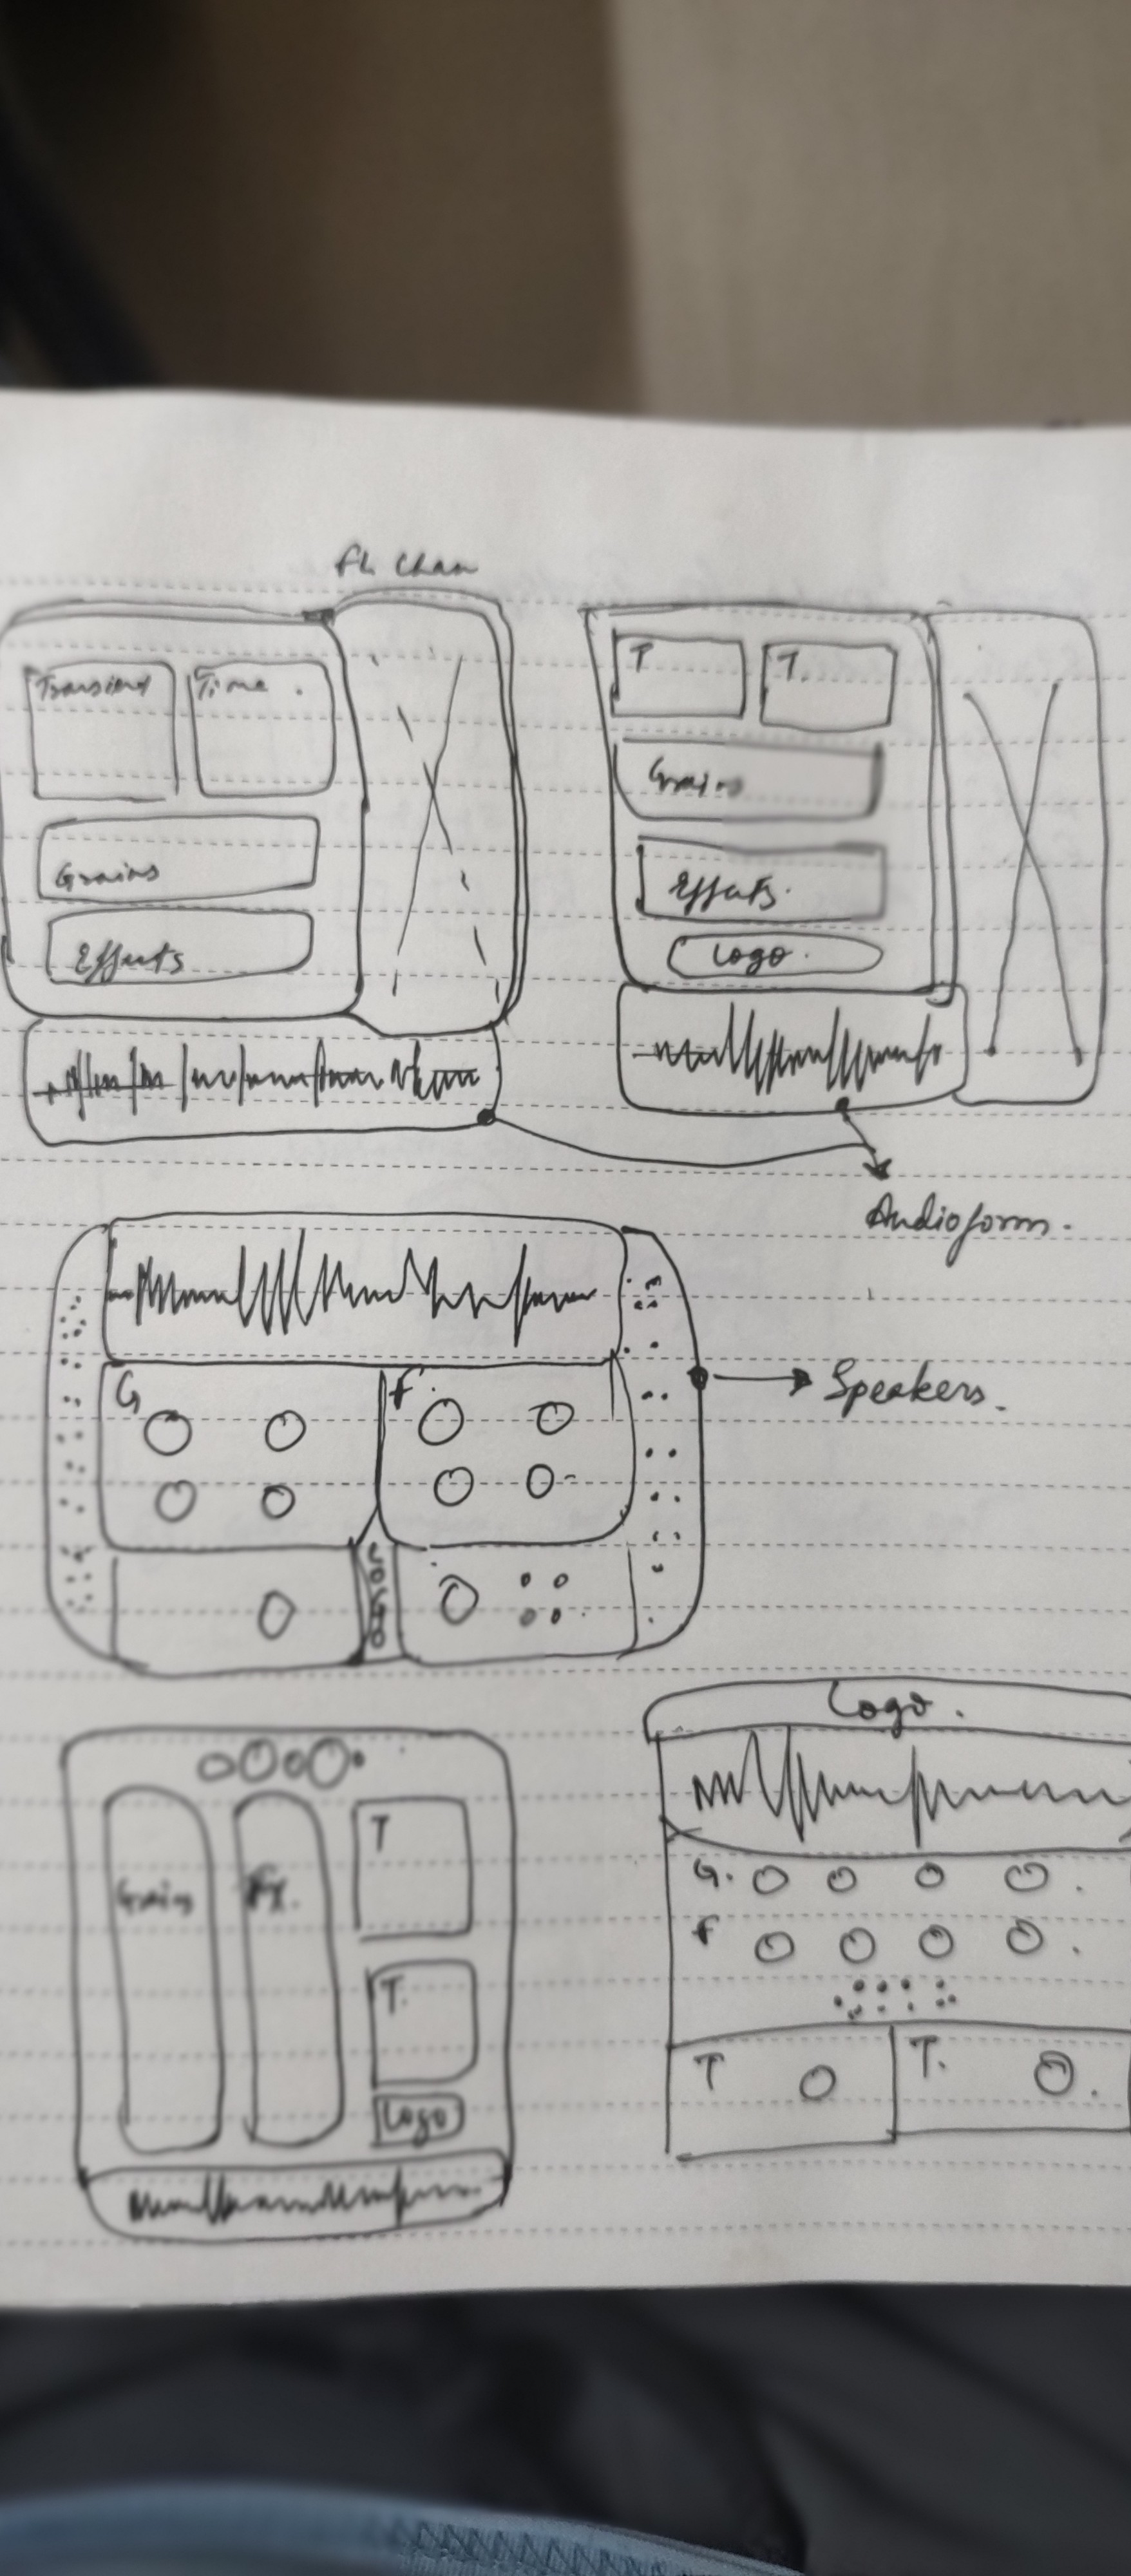 Transient
Time.
Grains
Effects
T
T.
Grains
Effects.
Logo.
Audioform.
G
F.
LOGO
Speakers.
Grain
Fx.
T
T.
Logo
Logo.
G.
F
T
T.